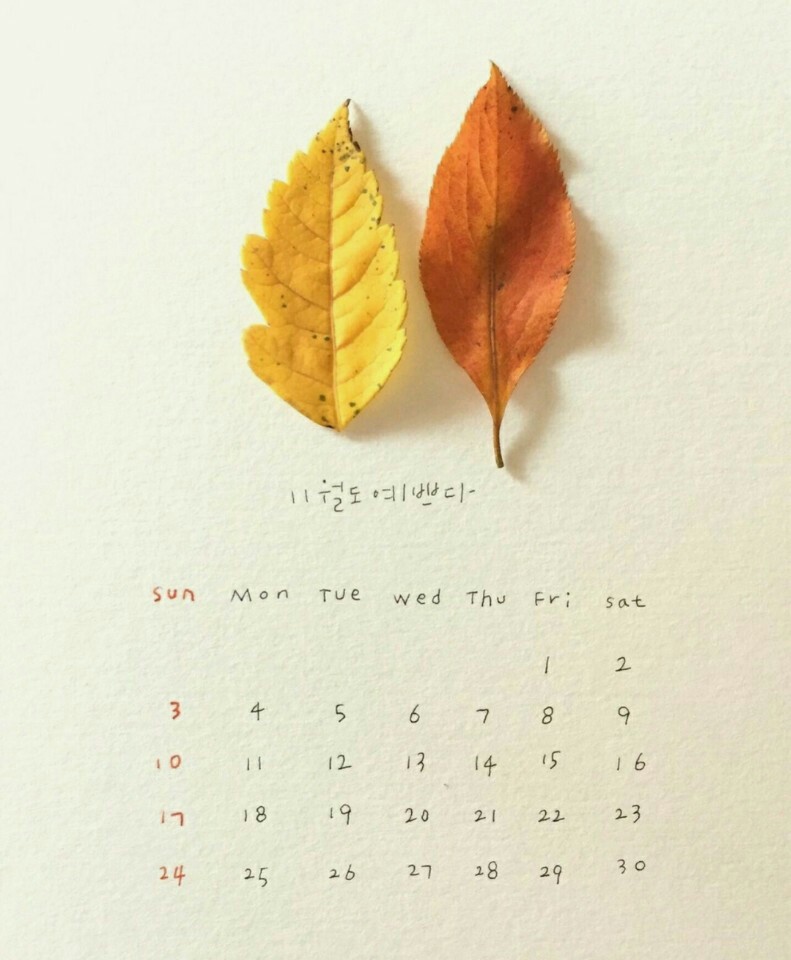 11월도 예쁘다
Sun Mon Tue Wed Thu Fri Sat
1 2
3 4 5 6 7 8 9
10 11 12 13 14 15 16
17 18 19 20 21 22 23
24 25 26 27 28 29 30